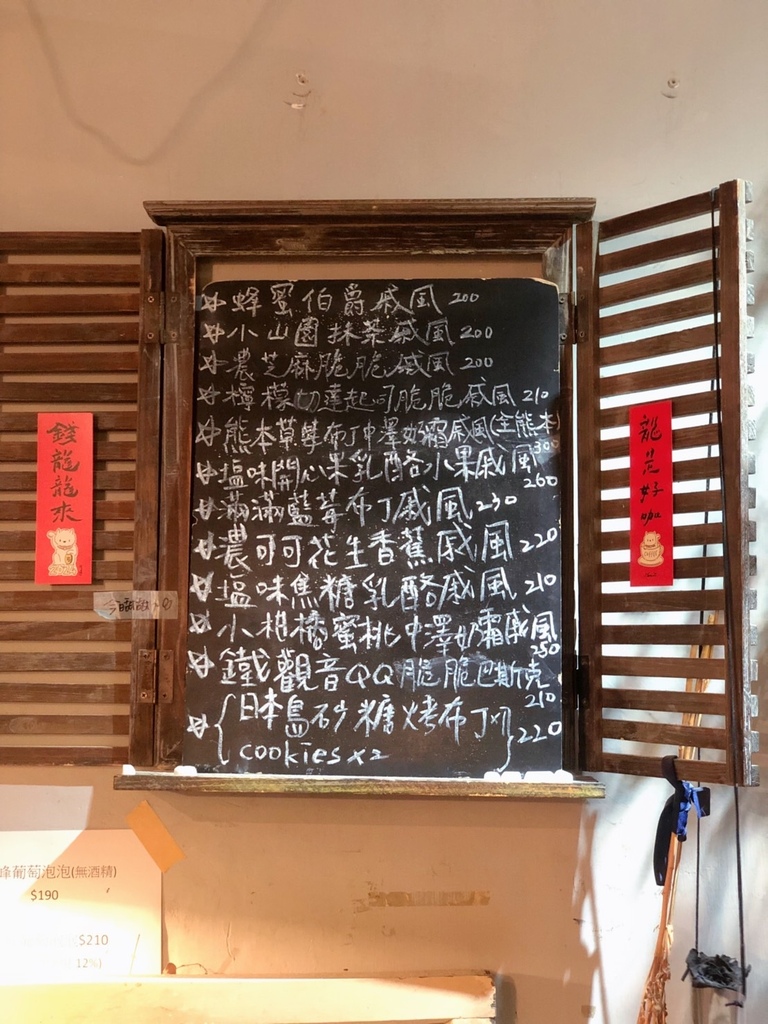 ☆ 蜂蜜伯爵戚風 200
☆ 小山園抹茶戚風 200
☆ 濃芝麻脆脆戚風 200
☆ 檸檬切達起司脆脆戚風 210
☆ 熊本草莓布丁中澤奶霜戚風(全熊本) 300
☆ 塩味開心果乳酪水果戚風 260
☆ 滿滿藍莓布丁戚風 230
☆ 濃可可花生香蕉戚風 220
☆ 塩味焦糖乳酪戚風 210
☆ 小柑橘蜜桃中澤奶霜戚風 250
☆ 鐵觀音QQ脆脆巴斯克 210
☆ {日本島砂糖烤布丁x1
cookiesx2} 220
錢龍龍來
龍是好咖
峰葡萄泡泡(無酒精)
$190
$210
12%)